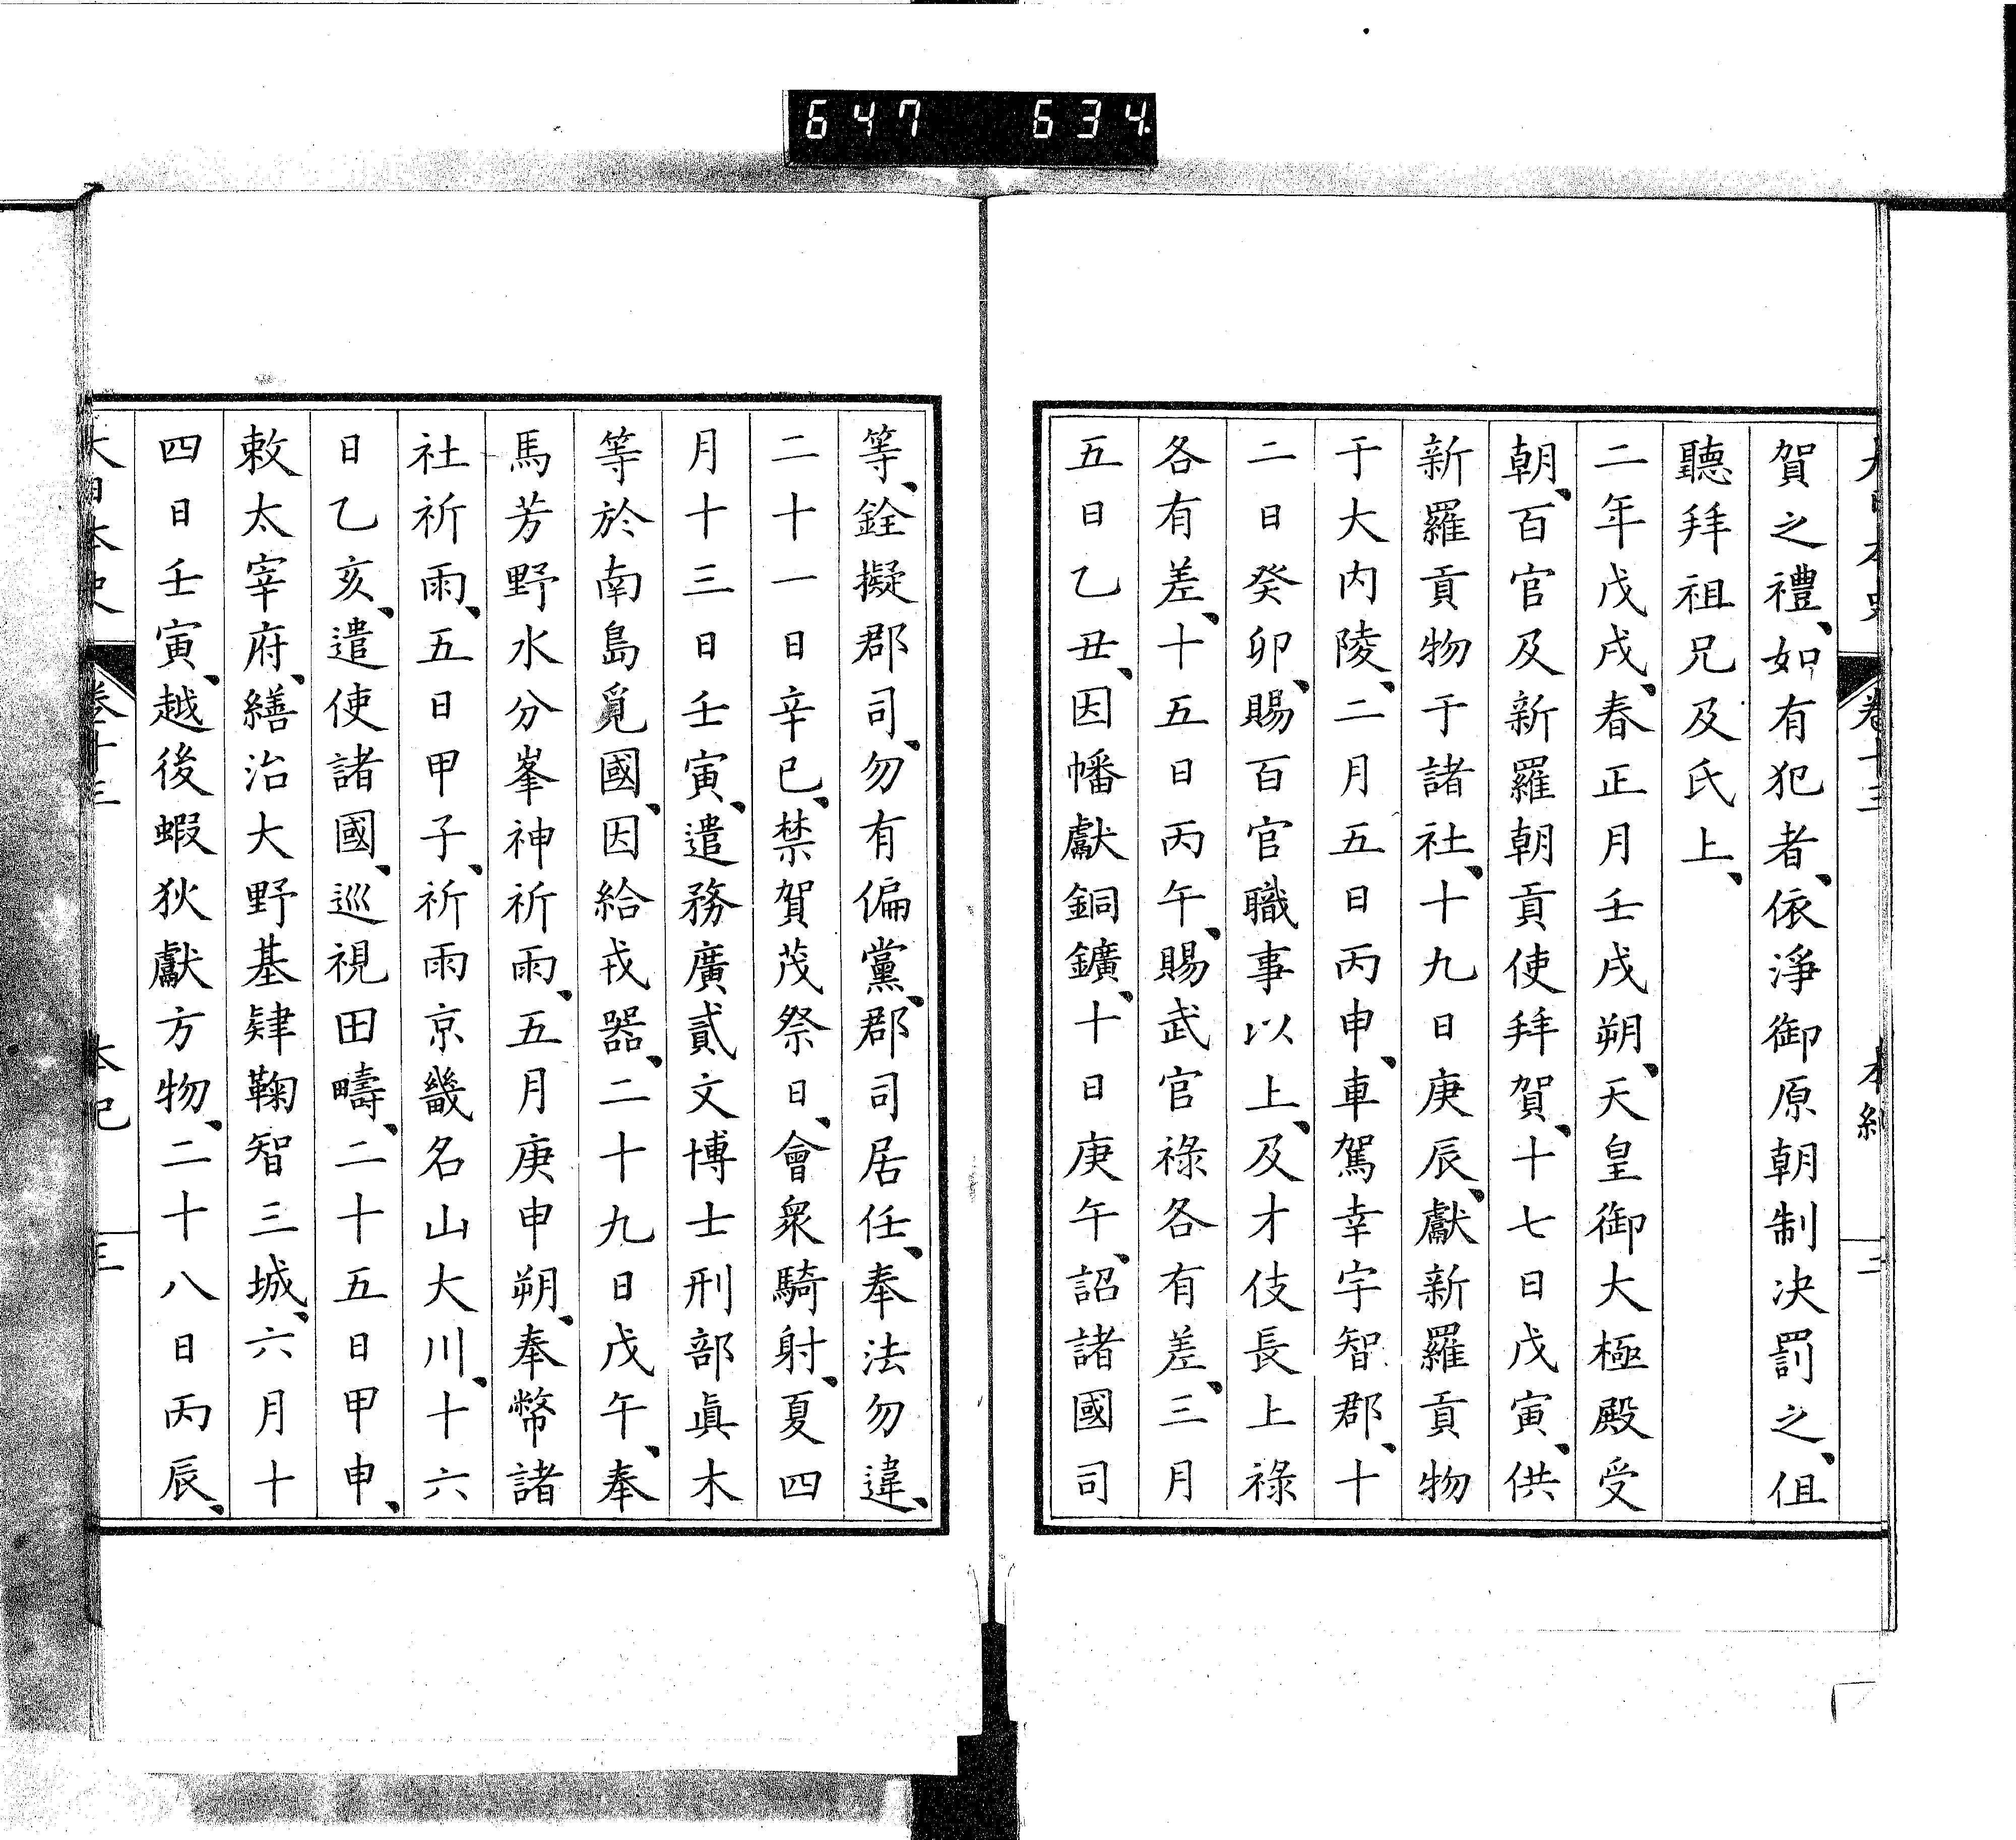 647 634
大日本史 卷十三 本紀 二
賀之禮、如有犯者、依淨御原朝制決罰之、但
聽拜祖兄及氏上、
二年戊戌、春正月壬戌朔、天皇御大極殿受
朝、百官及新羅朝貢使拜賀、十七日戊寅、供
新羅貢物于諸社、十九日庚辰、獻新羅貢物
于大內陵、二月五日丙申、車駕幸宇智郡、十
二日癸卯、賜百官職事以上、及才伎長上祿
各有差、十五日丙午、賜武官祿各有差、三月
五日乙丑、因幡獻銅鑛、十日庚午、詔諸國司
等、銓擬郡司、勿有偏黨、郡司居任、奉法勿違、
二十一日辛巳、禁賀茂祭日、會衆騎射、夏四
月十三日壬寅、遣務廣貳文博士刑部眞木
等於南島覓國、因給戎器、二十九日戊午、奉
馬芳野水分峯神祈雨、五月庚申朔、奉幣諸
社祈雨、五日甲子、祈雨京畿名山大川、十六
日乙亥、遣使諸國、巡視田疇、二十五日甲申、
敕太宰府、繕治大野基肄鞠智三城、六月十
四日壬寅、越後蝦狄獻方物、二十八日丙辰、
大日本史 卷十三 本紀 三